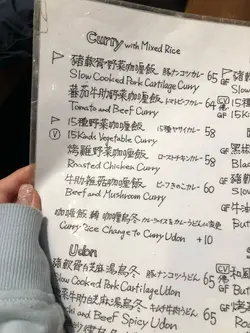 Curry with Mixed Rice
豬軟骨野菜咖喱飯 豚ナンコツカレー 65
Slow Cooked Pork Cartilage Curry
蕃茄牛肋野菜咖喱飯 トマトビーフカレー 64
Tomato and Beef Curry
15種野菜咖喱飯 15種ヤサイカレー 58
V 15 Kinds Vegetable Curry
烤雞野菜咖喱飯 ローストチキンカレー 58
Roasted Chicken Curry
牛肋雜菇咖喱飯 ビーフきのこカレー 60
Beef and Mushroom Curry
咖喱飯轉咖喱烏冬 カレーライスをカレーうどんに変更
Curry Rice Change to Curry Udon +10
Udon
豬軟骨白芝麻湯烏冬 豚ナンコツうどん 65
Slow Cooked Pork Cartilage Udon
菜牛肋白芝麻湯烏冬 キムチ牛肉うどん
chi and Beef Spicy Udon